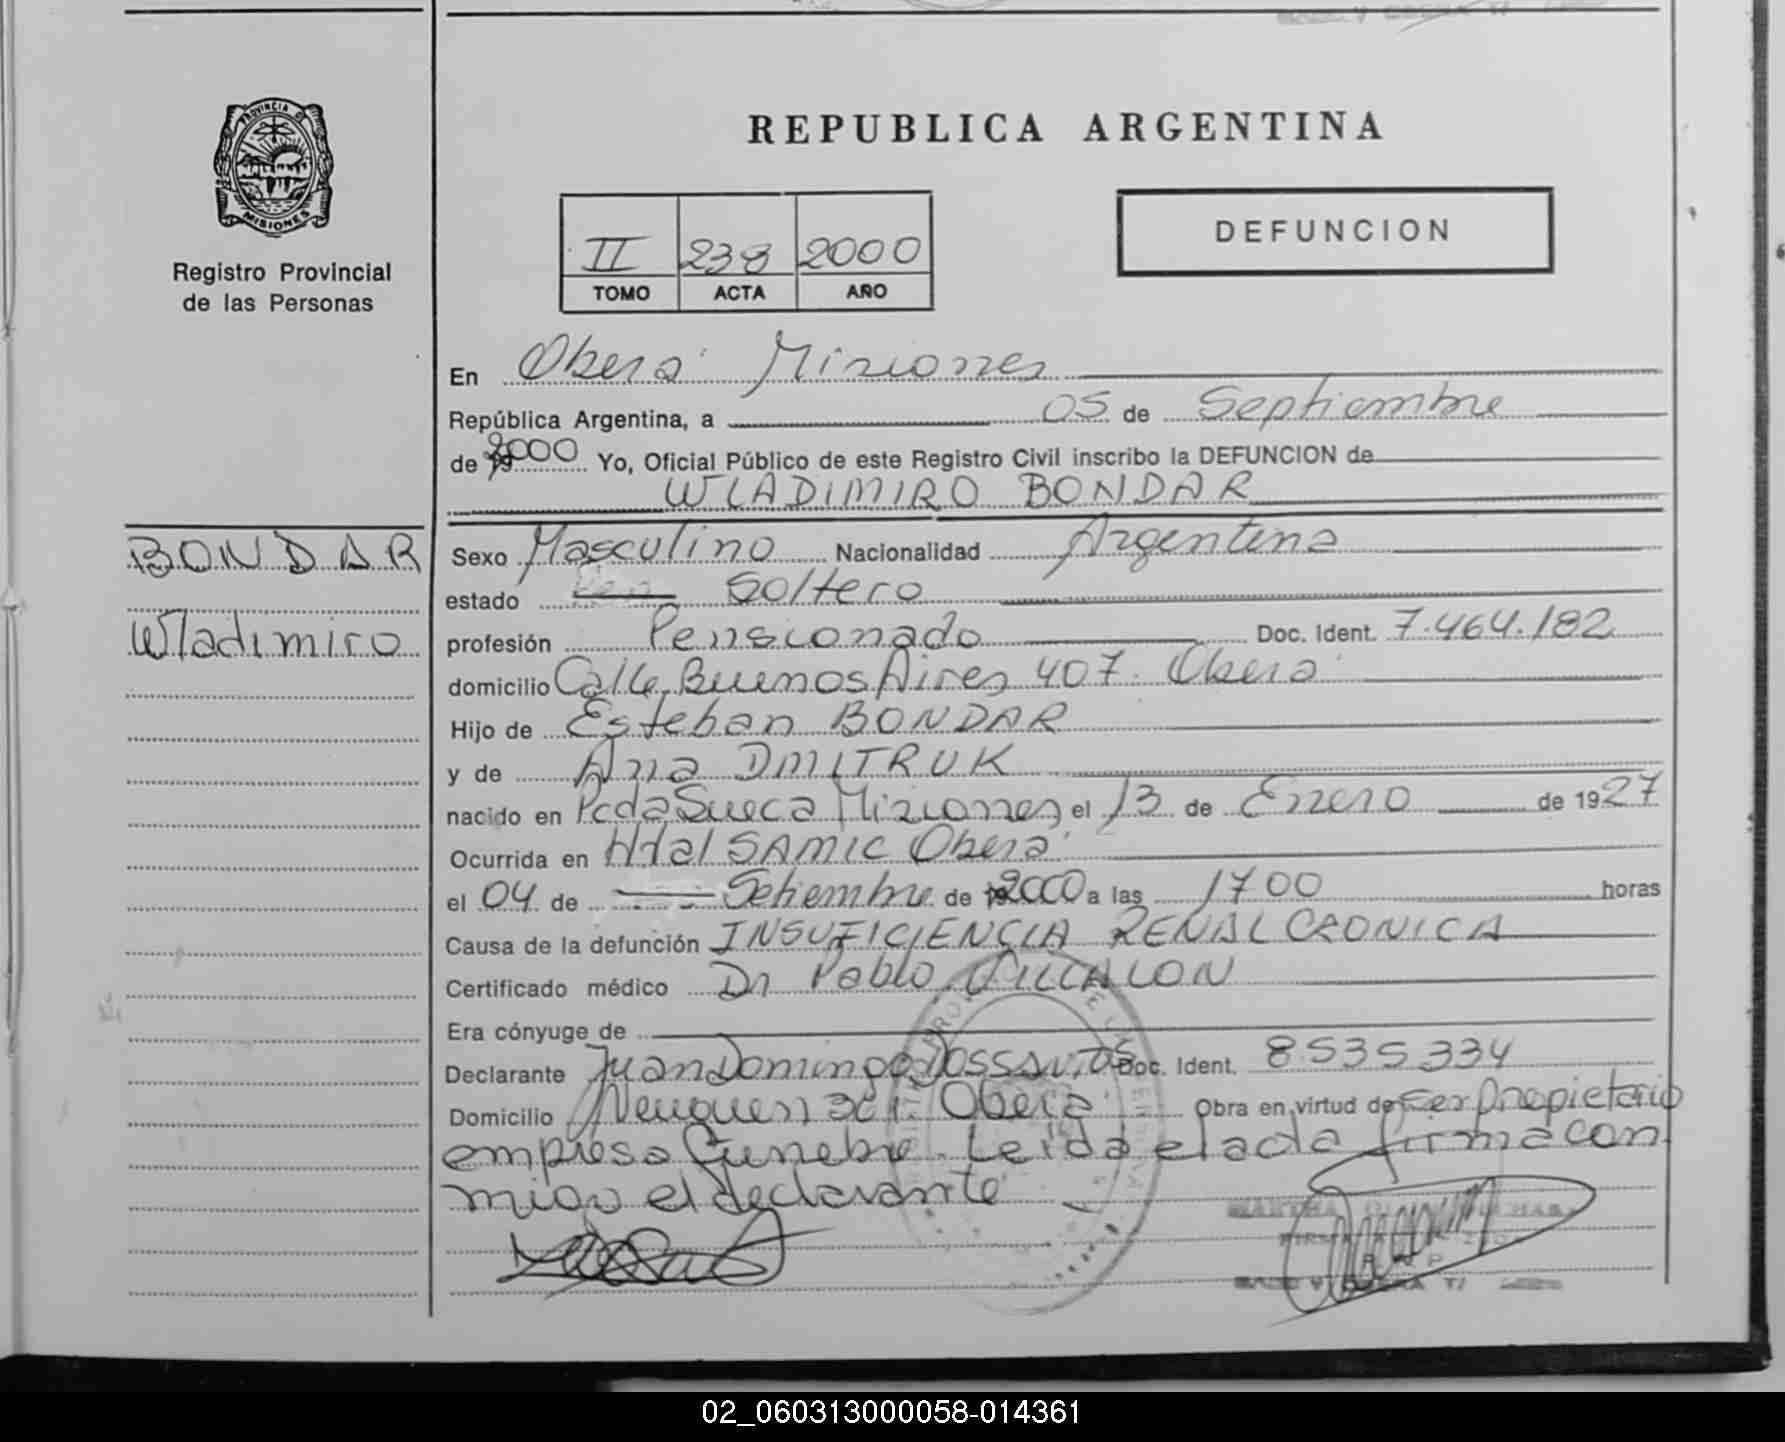 PROVINCIA DE
MISIONES
Registro Provincial
de las Personas
REPUBLICA ARGENTINA
II 238 2000
TOMO ACTA AÑO
DEFUNCION
En Oberá Misiones
República Argentina, a 05 de Septiembre
de 2000 Yo, Oficial Público de este Registro Civil inscribo la DEFUNCION de
WLADIMIRO BONDAR
BONDAR
Wladimiro
Sexo Masculino Nacionalidad Argentina
estado Soltero
profesión Pensionado Doc. Ident. 7.464.182
domicilio Calle Buenos Aires 407. Oberá
Hijo de Esteban BONDAR
y de Ana DMITRUK
nacido en Pcda Sueca Misiones el 13 de Enero de 1927
Ocurrida en Htal SAMIC Oberá
el 04 de Setiembre de 2000 a las 17 00 horas
Causa de la defunción INSUFICIENCIA RENAL CRONICA
Certificado médico Dr Pablo VILLALON
Era cónyuge de
Declarante Juan Domingo Doc. Ident. 8535334
Domicilio Neuquen Oberá Obra en virtud de ser Propietario
empresa funebre. Leida el acta firma con
migo el declarante
MARTHA
02_060313000058-014361